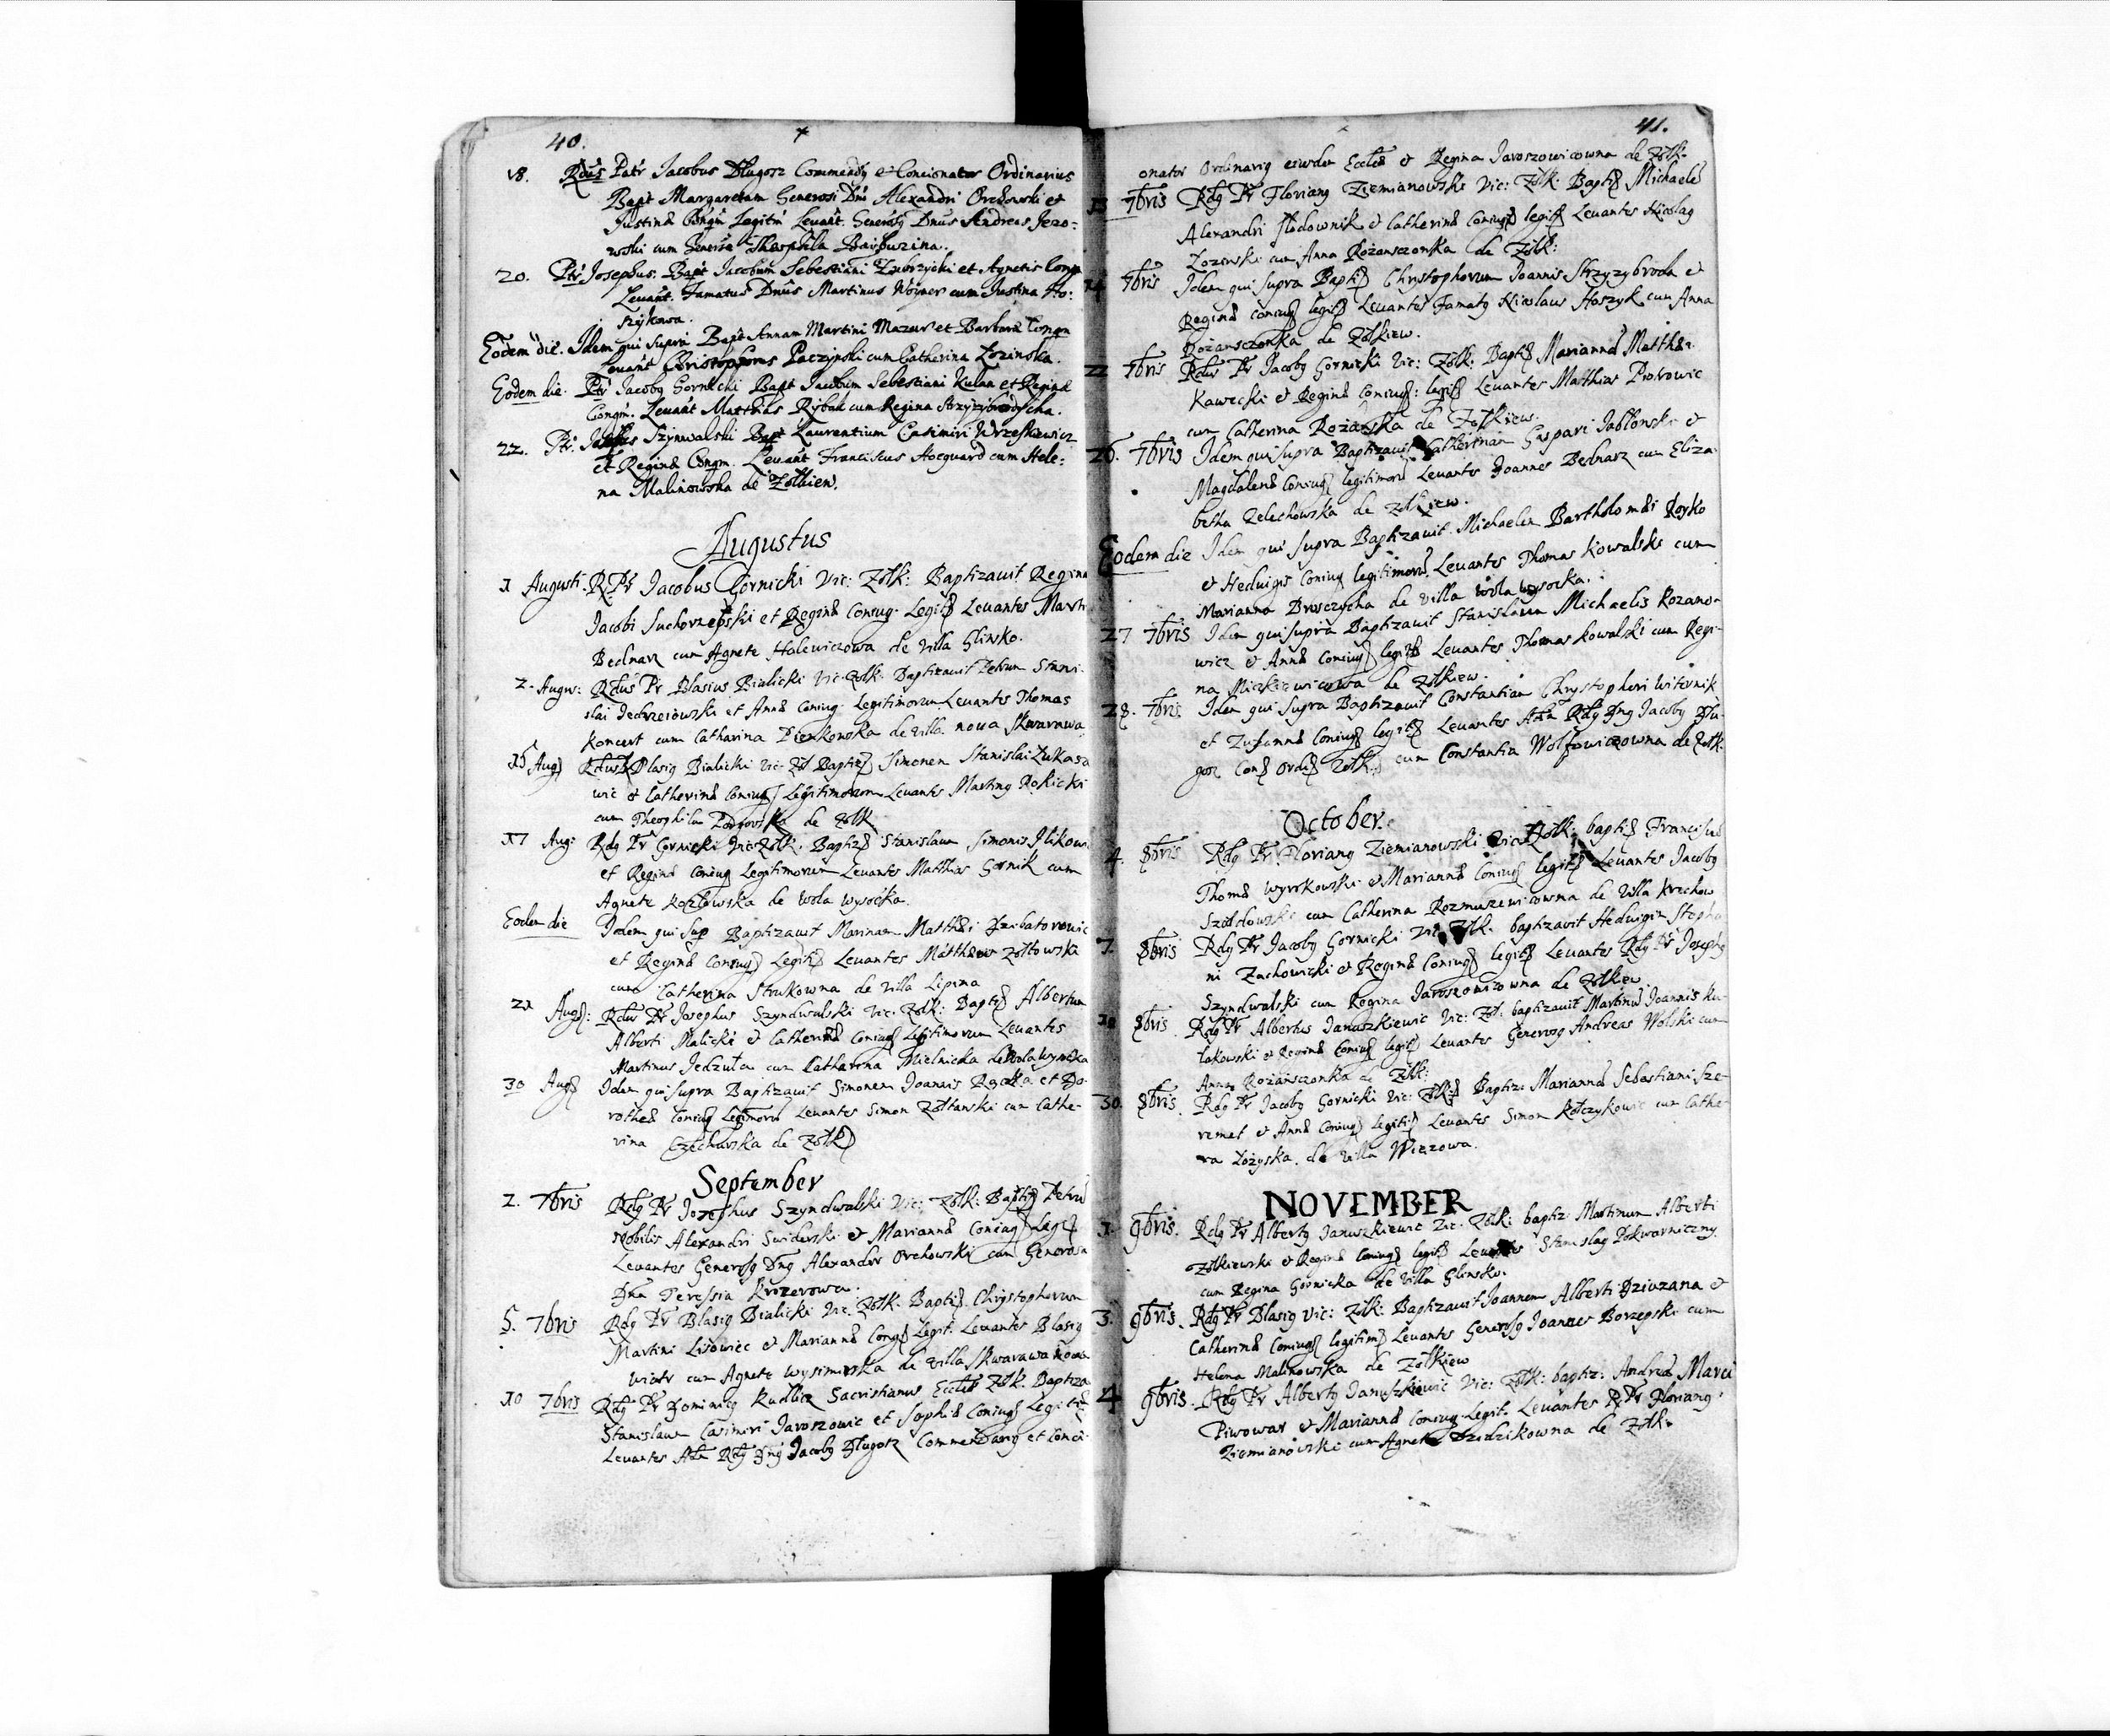 40.
18. Rdus Patr Jacobus Dlugosz Commendg et Concionator Ordinarius
Bapt Margaretam Generosi Dni Alexandri Orchowski et
Justinæ Congm Legitm Levant. Generosg Dnus Andreas Jezo-
wski cum Generosa Theophila
20. Ptr Josephus. Bapt Jacobum Sebestiani Zubrzycki et Agnetis Congm
Levant. Famatus Dnus Martinus Woyner cum Justina Ho:
szykowa.
Eodem die. Idem qui supra Bapt Annam Martini Mazur et Barbaræ Congm
Levant Christophorus Paczynski cum Catherina Lozinska.
Eodem die. Ptr Jacobg Gornicki Bapt Jacobum Sebestiani Kulan et Reginæ
Congm. Levant Matthias Rybak cum Regina Strzyzybrodscha.
22. Ptr. Josephus Szynwalski Bapt Laurentium Casimiri Wrzeskiewicz
et Reginæ Congm. Levant Franciscus Hocquard cum Hele:
na Malinowska de Zolkiew.
Augustus
1 Augusti. R. Pr Jacobus Gornicki Vic: Zolk: Baptizavit Regina
Jacobi Suchorzepski et Reginæ Coniug. Legit Levantes Marti
Bednarz cum Agnete Halewiczowa de Villa Glinsko.
2. Augus: Rdus Pr Blasius Bialicki Vic. Zolk. Baptizavit Petrum Stani-
slai Jedrzeiowski et Annæ Coniug. Legitimorum Levantes Thomas
Koncert cum Catharina Pienkowska de villa nova Skwarawa
15 Aug Rdus Pr Blasig Bialicki Vic. Zol Baptiz Simonem Stanislai Zukasze
wic et Catherinæ Coniug Legitimorum Levantes Marting Rokicki
cum Theophila Podgorska de Zolk
17 Aug: Rdg Pr Gornicki Vic: Zolk. Baptiz Stanislaum Simonis Ilikow
et Reginæ Coniug Legitimorum Levantes Matthias Gornik cum
Agnete Kozlowska de Wola Wysocka.
Eodem die Idem qui sup Baptizavit Marinam Matthæi
et Reginæ Coniug Legit Levantes Matthæus Zoltowski
cum Catherina Strukowna de villa Lipina
21 Aug: Rdus Pr Josephus Szyndwalski Vic: Zolk: Baptiz Albertum
Alberti Malicki et Catherinæ Coniug Legitimorum Levantes
Martinus Jedzula cum Catharina Mielnicka de Wola Wysocka
30 Aug Idem qui supra Baptizavit Simonem Joannis et Do-
rotheæ Coniug Legitimoru Levantes Simon Zoltanski cum Cathe-
rina Czechowska de Zolk
September
2. 7bris Rdg Pr Josephus Szyndwalski Vic: Zolk: Baptiz Petru
Nobilis Alexandri Swiderski et Mariannæ Coniug Legit
Levantes Generosg Dng Alexander Orchowski cum Generosa
Dna Teressia Krozerowa.
5. 7bris Rdg Pr Blasig Bialicki Vic. Zolk. Baptiz. Chrystophorum
Martini Lisowiec et Mariannæ Coniug Legit. Levantes Blasig
Wiatr cum Agnete Wysimirska de villa Skwarawa Nowa
10 7bris Rdg Pr Dominicg Kudlicz Sacristianus Eccles Zolk. Baptiza
Stanislaum Casimiri Jaroszowic et Sophiæ Coniug Legit
Levantes Adm Rdg Dng Jacobg Dlugosz Commendarig et Conci-
41.
onator Ordinarig eiusdem Eccles et Regina Jaroszowicowna de Zolk.
13 7bris Rdg Pr Floriang Ziemianowski Vic: Zolk. Baptiz Michaele
Alexandri Hodownik et Catherinæ Coniug legit Levantes Nicolag
Lozinski cum Anna Rozansczonka de Zolk:
14 7bris Idem qui supra Baptiz Christophorum Joannis Strzyzybroda et
Reginæ Coniug legit Levantes Famatg Nicolaus Hoszyk cum Anna
Rozansczonka de Zolkiew.
22 7bris Rdus Pr Jacobg Gornicki Vic: Zolk: Baptiz Mariannæ Matthæi
Kawecki et Reginæ Coniug: legit Levantes Matthias Piotrowic
cum Catherina Rozanska de Zolkiew.
26. 7bris Idem qui supra Baptizavit Catherinam Gaspari Jablonski et
Magdalenæ Coniug legitimoru Levantes Joannes Bednarz cum Eliza-
betha Zelechowska de Zolkiew.
Eodem die Idem qui supra Baptizavit Michaelem Bartholomæi Royko
et Heduigis Coniug legitimoru. Levantes Thomas Kowalski cum
Marianna Broszczycha de villa Wola Wysocka.
27 7bris Idem qui supra Baptizavit Stanislaum Michaelis Kozano-
wicz et Annæ Coniug legit Levantes Thomas Kowalski cum Regi-
na Mickiewicowa de Zolkiew.
28. 7bris Idem qui supra Baptizavit Constantiam Chrystophori Witwnik
et Zusannæ Coniug legit Levantes Adm Rdg Dng Jacobg Dlu-
gosz Con Ordi Zolk cum Constantia Wolfowiczowna de Zolk.
October.
4. 8bris Rdg Pr Floriang Ziemianowski Vic Zolk: baptiz Franciscu
Thomæ Wyrokowski et Mariannæ Coniug legit Levantes Jacobg
cum Catherina Rozmuzewicowna de Villa Krechow
7. 8bris Rdg Pr Jacobg Gornicki Vic Zolk. baptizavit Heduigim Stepha
ni Zuchowicki et Reginæ Coniug legit Levantes Rdg Pr Josephg
Szyndwalski cum Regina Jaroszowizowna de Zolkiew.
10 8bris Rdg Pr Albertus Januszkiewic Vic: Zol: baptizavit Martinu Joannis Ku-
lakowski et Reginæ Coniug legit Levantes Generosg Andreas Wolski cum
Anna Rozansczonka de Zolk:
30. 8bris. Rdg Pr Jacobg Gornicki Vic: Zolk Baptiz: Mariannæ Sebastiani Sze-
remet et Annæ Coniug Legiti Levantes Simon Kolczykowic cum Cathe-
ra Lozyska. de Villa Wiezowa.
NOVEMBER
1. 9bris. Rdg Pr Albertg Januszkiewic Vic. Zolk: baptiz: Martinum Alberti
Zolkiewski et Reginæ Coniug legit Levantes Stanislag Pokwarniczny
cum Regina Gornicka de villa Glinsko.
3. 9bris. Rdg Pr Blasig Vic: Zolk: Baptizavit Joannem Alberti Dziuzana et
Catherinæ Coniug legitim Levantes Generosg Joannes Borzepski cum
Helena Malinowska de Zolkiew
4 9bris. Rdg Pr Albertg Januszkiewic Vic: Zolk: baptiz: Andreæ Marci
Piwowar et Mariannæ Coniug. Legit. Levantes R Pr Floriang
Ziemianowski cum Agnete Dzidzikowna de Zolk.